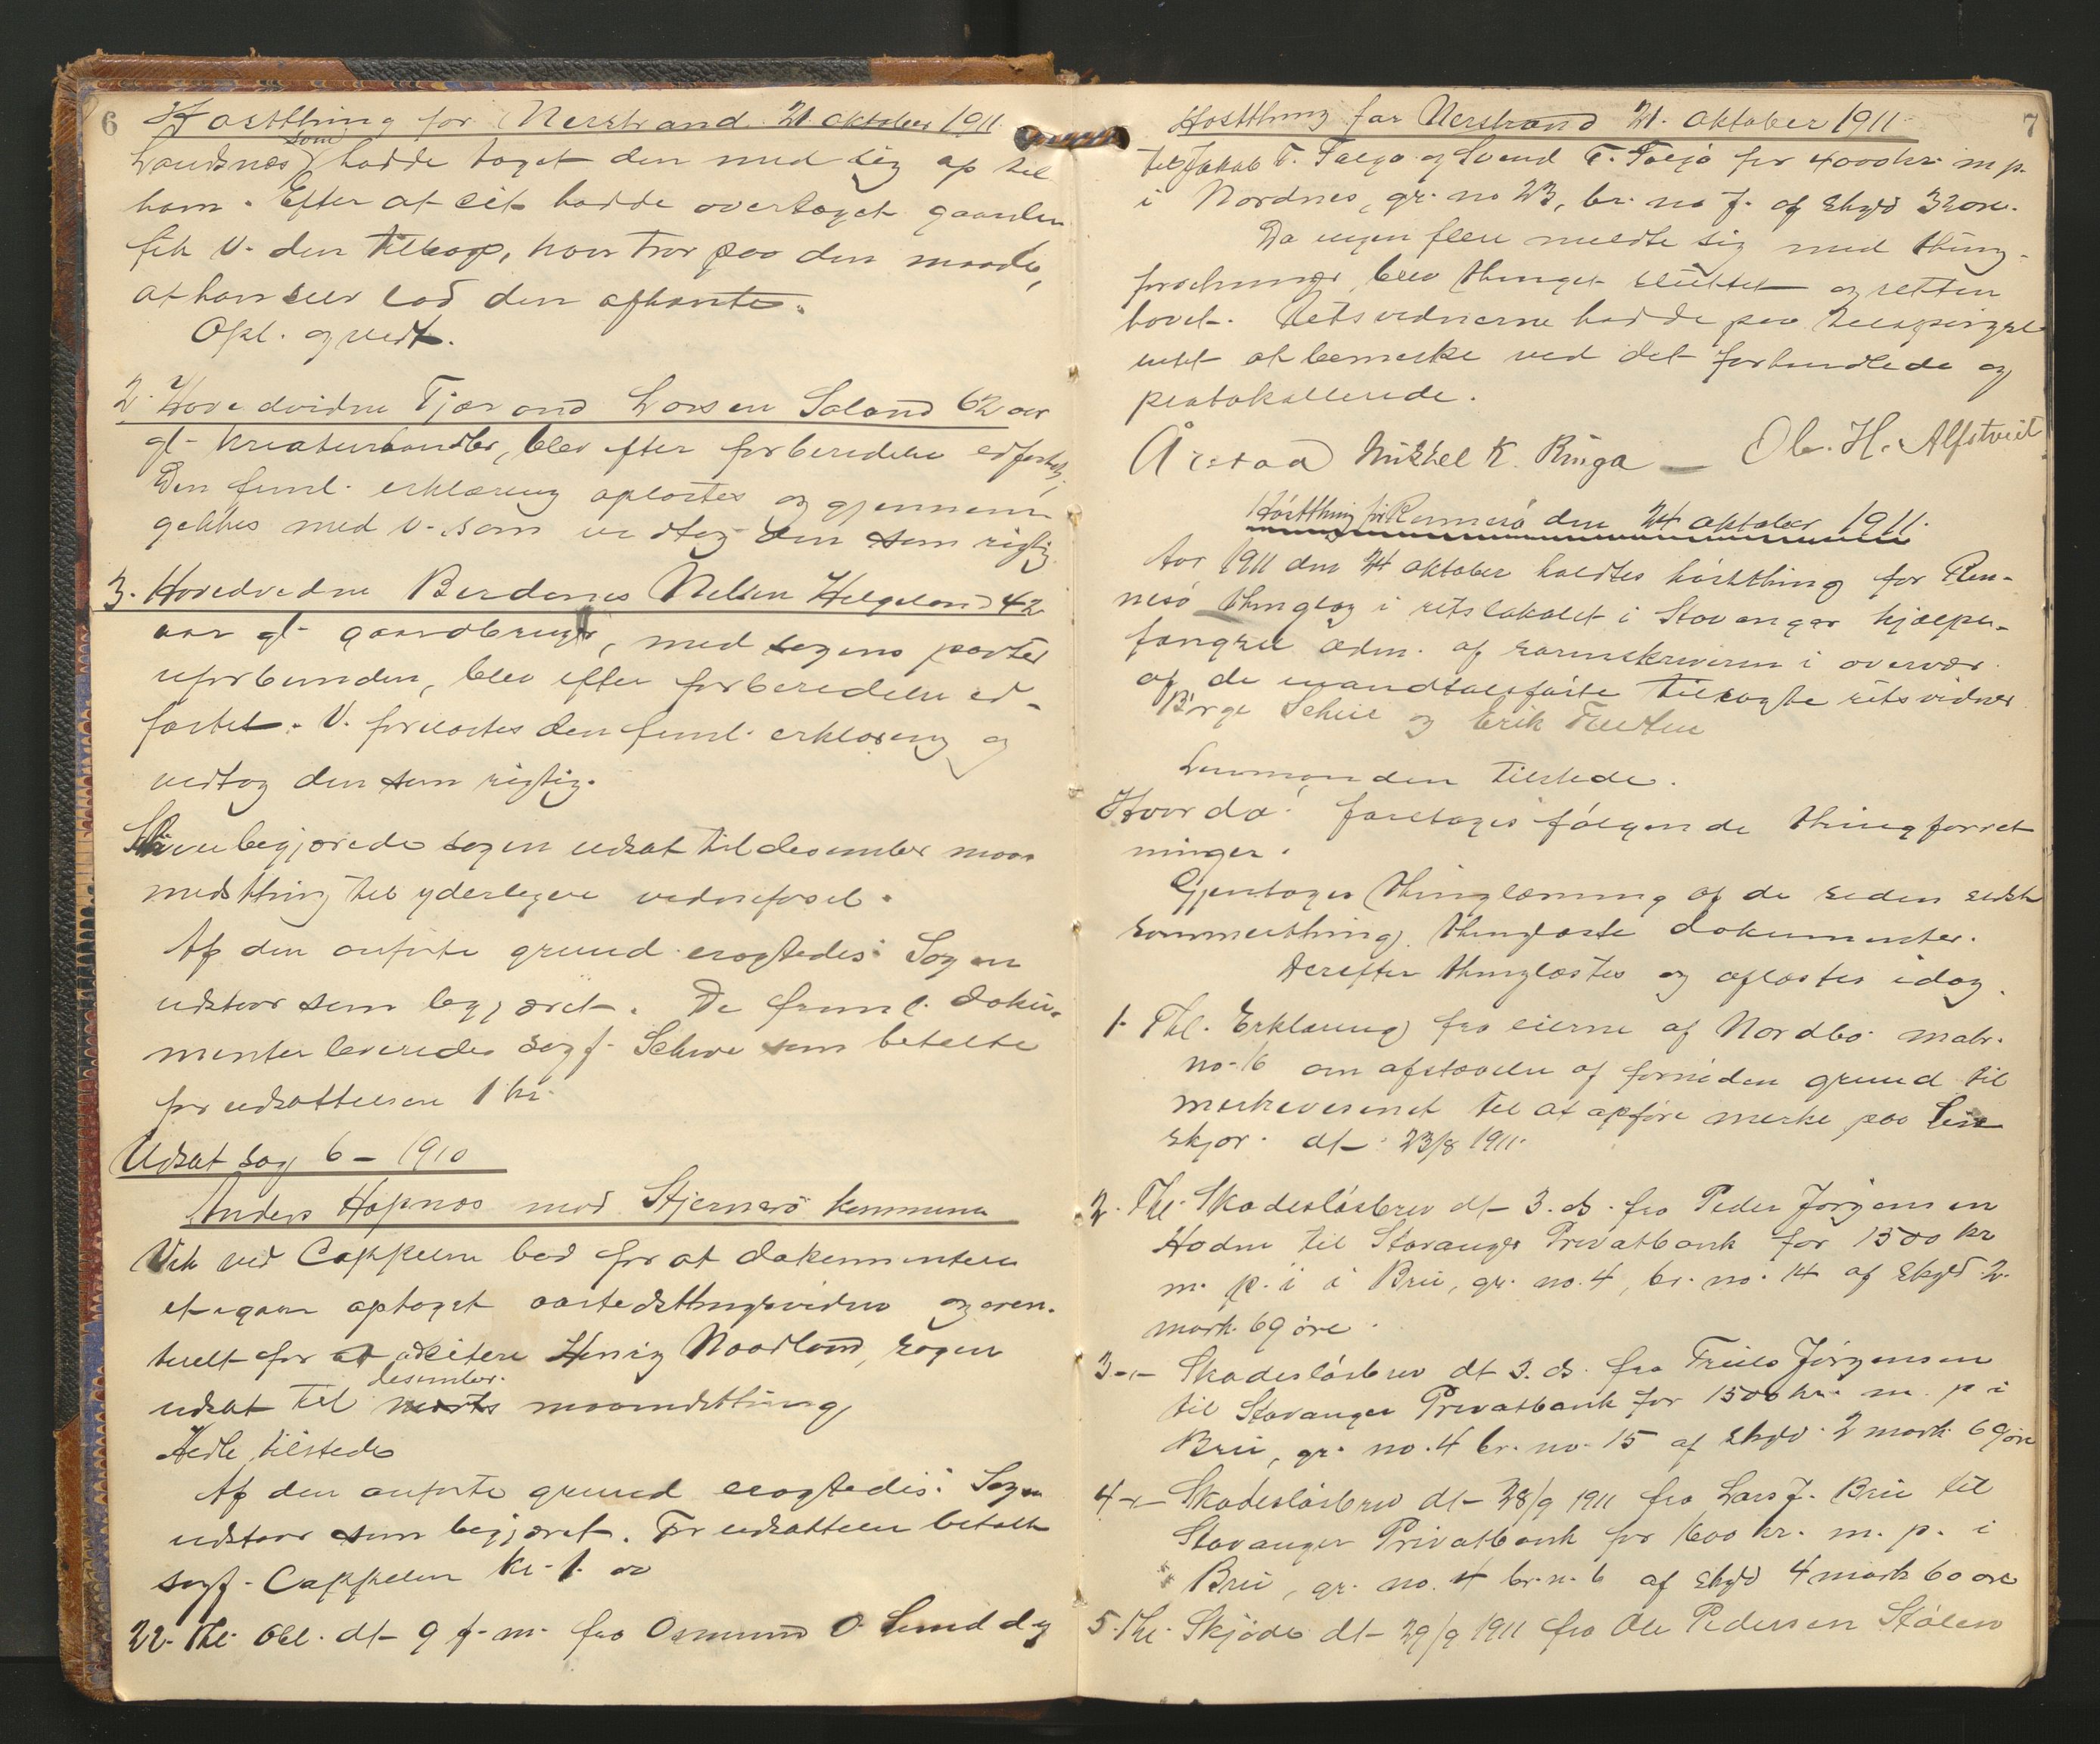 6
Høstthing for Nerstrand 21 oktober 1911.
som
Landsnæs hadde taget den med sig op til
ham. Efter at cit. hadde overtaget gaarden
fik V. den tilbage, han tror paa den maade,
at han selv lod den afhente.
Opl. og vedt.
2. Hovedvidne Tjærand Larsen Saland 62 aar
gl. kreaturhandler, blev efter forberedelse edfæstet.
Den freml. erklæring oplæstes og gjennem-
gikkes med V. som vedtog den som rigtig
3. Hovedvidne Berdenes Nelsen Helgeland 42
aar gl. gaardbruger, med sagens parter
uforbunden, blev efter forberedelse ed-
fæstet. V. forelæstes den freml. erklæring og
vedtog den som rigtig.
Schive begjærede sagen udsat til desember maa-
nedsthing til yderligere vidneførsel.
Af den anførte grund eragtedes: Sagen
udstaar som begjæret. De freml. doku-
menter leveredes sagf. Schive som betalte
for udsættelsen 1 kr.
Udsat sag 6 - 1910
Anders Hapnæs mod Stjernerø kommune
Vik ved Cappelen bad for at dokumentere
et igaar optaget aastedsthingsvidne og even-
tuelt for at adcitere Henrig Naadland, sagen
desember
udsat til marts maanedsthing
Hedle tilstede
Af den anførte grund eragtedes: Sagen
udstaar som begjæret. For udsættelsen betalte
sagf. Cappelen kr. 1.00
22. Thl. Obl. dt. 9 f. m. fra Osmund O. Lund d.y
7
Høstthing for Nerstrand 21. oktober 1911.
til Jakob T. Falgø og Svend T. Falgø for 4000 kr. m p.
i Nordnes, gr. no 23, br. no 7. af skyld 32 øre.
Da ingen flere meldte sig med thing-
forretninger, blev thinget sluttet og retten
hævet. Retsvidnerne hadde paa tilspørgsel
intet at bemerke ved det forhandlede og
protokollerede.
Årstad Mikkel K. Ringa — Ole. H. Alfstveit
Høstthing for Rennesø den 24 oktober 1911.
Aar 1911 den 24 oktober holdtes høstthing for Ren-
nesø thinglag i retslokalet i Stavanger hjælpe-
fængsel adm. af sorenskriveren i overvær
af de mandtalsførte tilsagte retsvidner
Børge Schiie og Erik
Lensmanden tilstede.
Hvorda: foretages følgende thingforret
ninger.
Gjentages thinglæsning af de siden sidste
sommerthing thinglæste dokumenter.
Derefter thinglæstes og aflæstes idag.
1. Thl. Erklæring fra eierne af Nordbø matr.
no. 16 om afstaaelse af fornøden grund til
merkevesenet til at opføre merke paa
skjær. dt. 23/8 1911.
2. Thl. Skadesløsbrev dt. 3. ds. fra Peder Jørgensen
Hodne til Stavanger Privatbank for 1500 kr
m. p. i i Brii, gr. no. 4, br. no. 14 af skyld 2
mark 69 øre.
3 -,- Skadesløsbrev dt 3. ds. fra Jørgensen
til Stavanger Privatbank for 1500 kr. m. p i
Brii, gr. no. 4 br. no. 15 af skyld 2 mark 69 øre
4 -,- Skadesløsbrev dt. 28/9 1911 fra Lars J. Brii til
Stavanger Privatbank for 1600 kr. m. p. i
Brii, gr. no. 4 br. n. 6 af skyld 4 mark 60 øre
5. Thl. Skjøde dt. 29/9 1911 fra Ole Pedersen Stølen